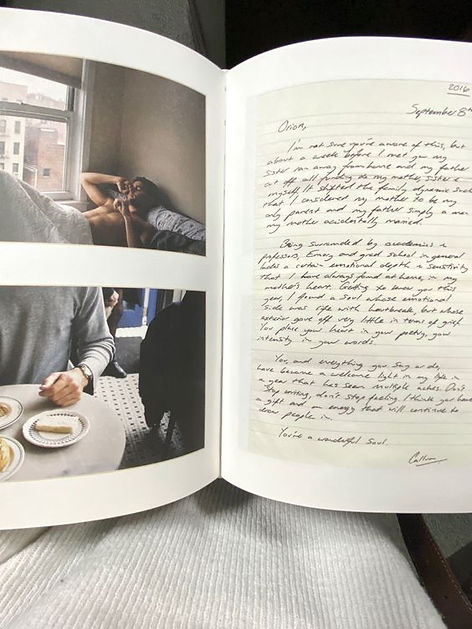 2016
September 8th
Orion,
I'm not sure you're aware of this, but
about a week before I met you my
sister ran away from home and my father
cut off all funding to my mother, sister &
myself. It shifted the family dynamic such
that I considered my mother to be my
only parent and my father simply a man
my mother accidentally married.
Being surrounded by academics &
professors, Emory and grad school in general
lacks a certain emotional depth & sensitivity
that I have always found at home, in my
mother's heart. Getting to know you this
year, I found a soul whose emotional
side was rife with heartbreak, but whose
exterior gave off very little in terms of grief.
You place your heart in your poetry, your
intensity in your words.
You, and everything you sing or do,
have become a welcome light in my life in
a year that has seen multiple aches. Don't
stop writing, don't stop feeling. I think you have
a gift and an energy that will continue to
draw people in.
You're a wonderful soul.